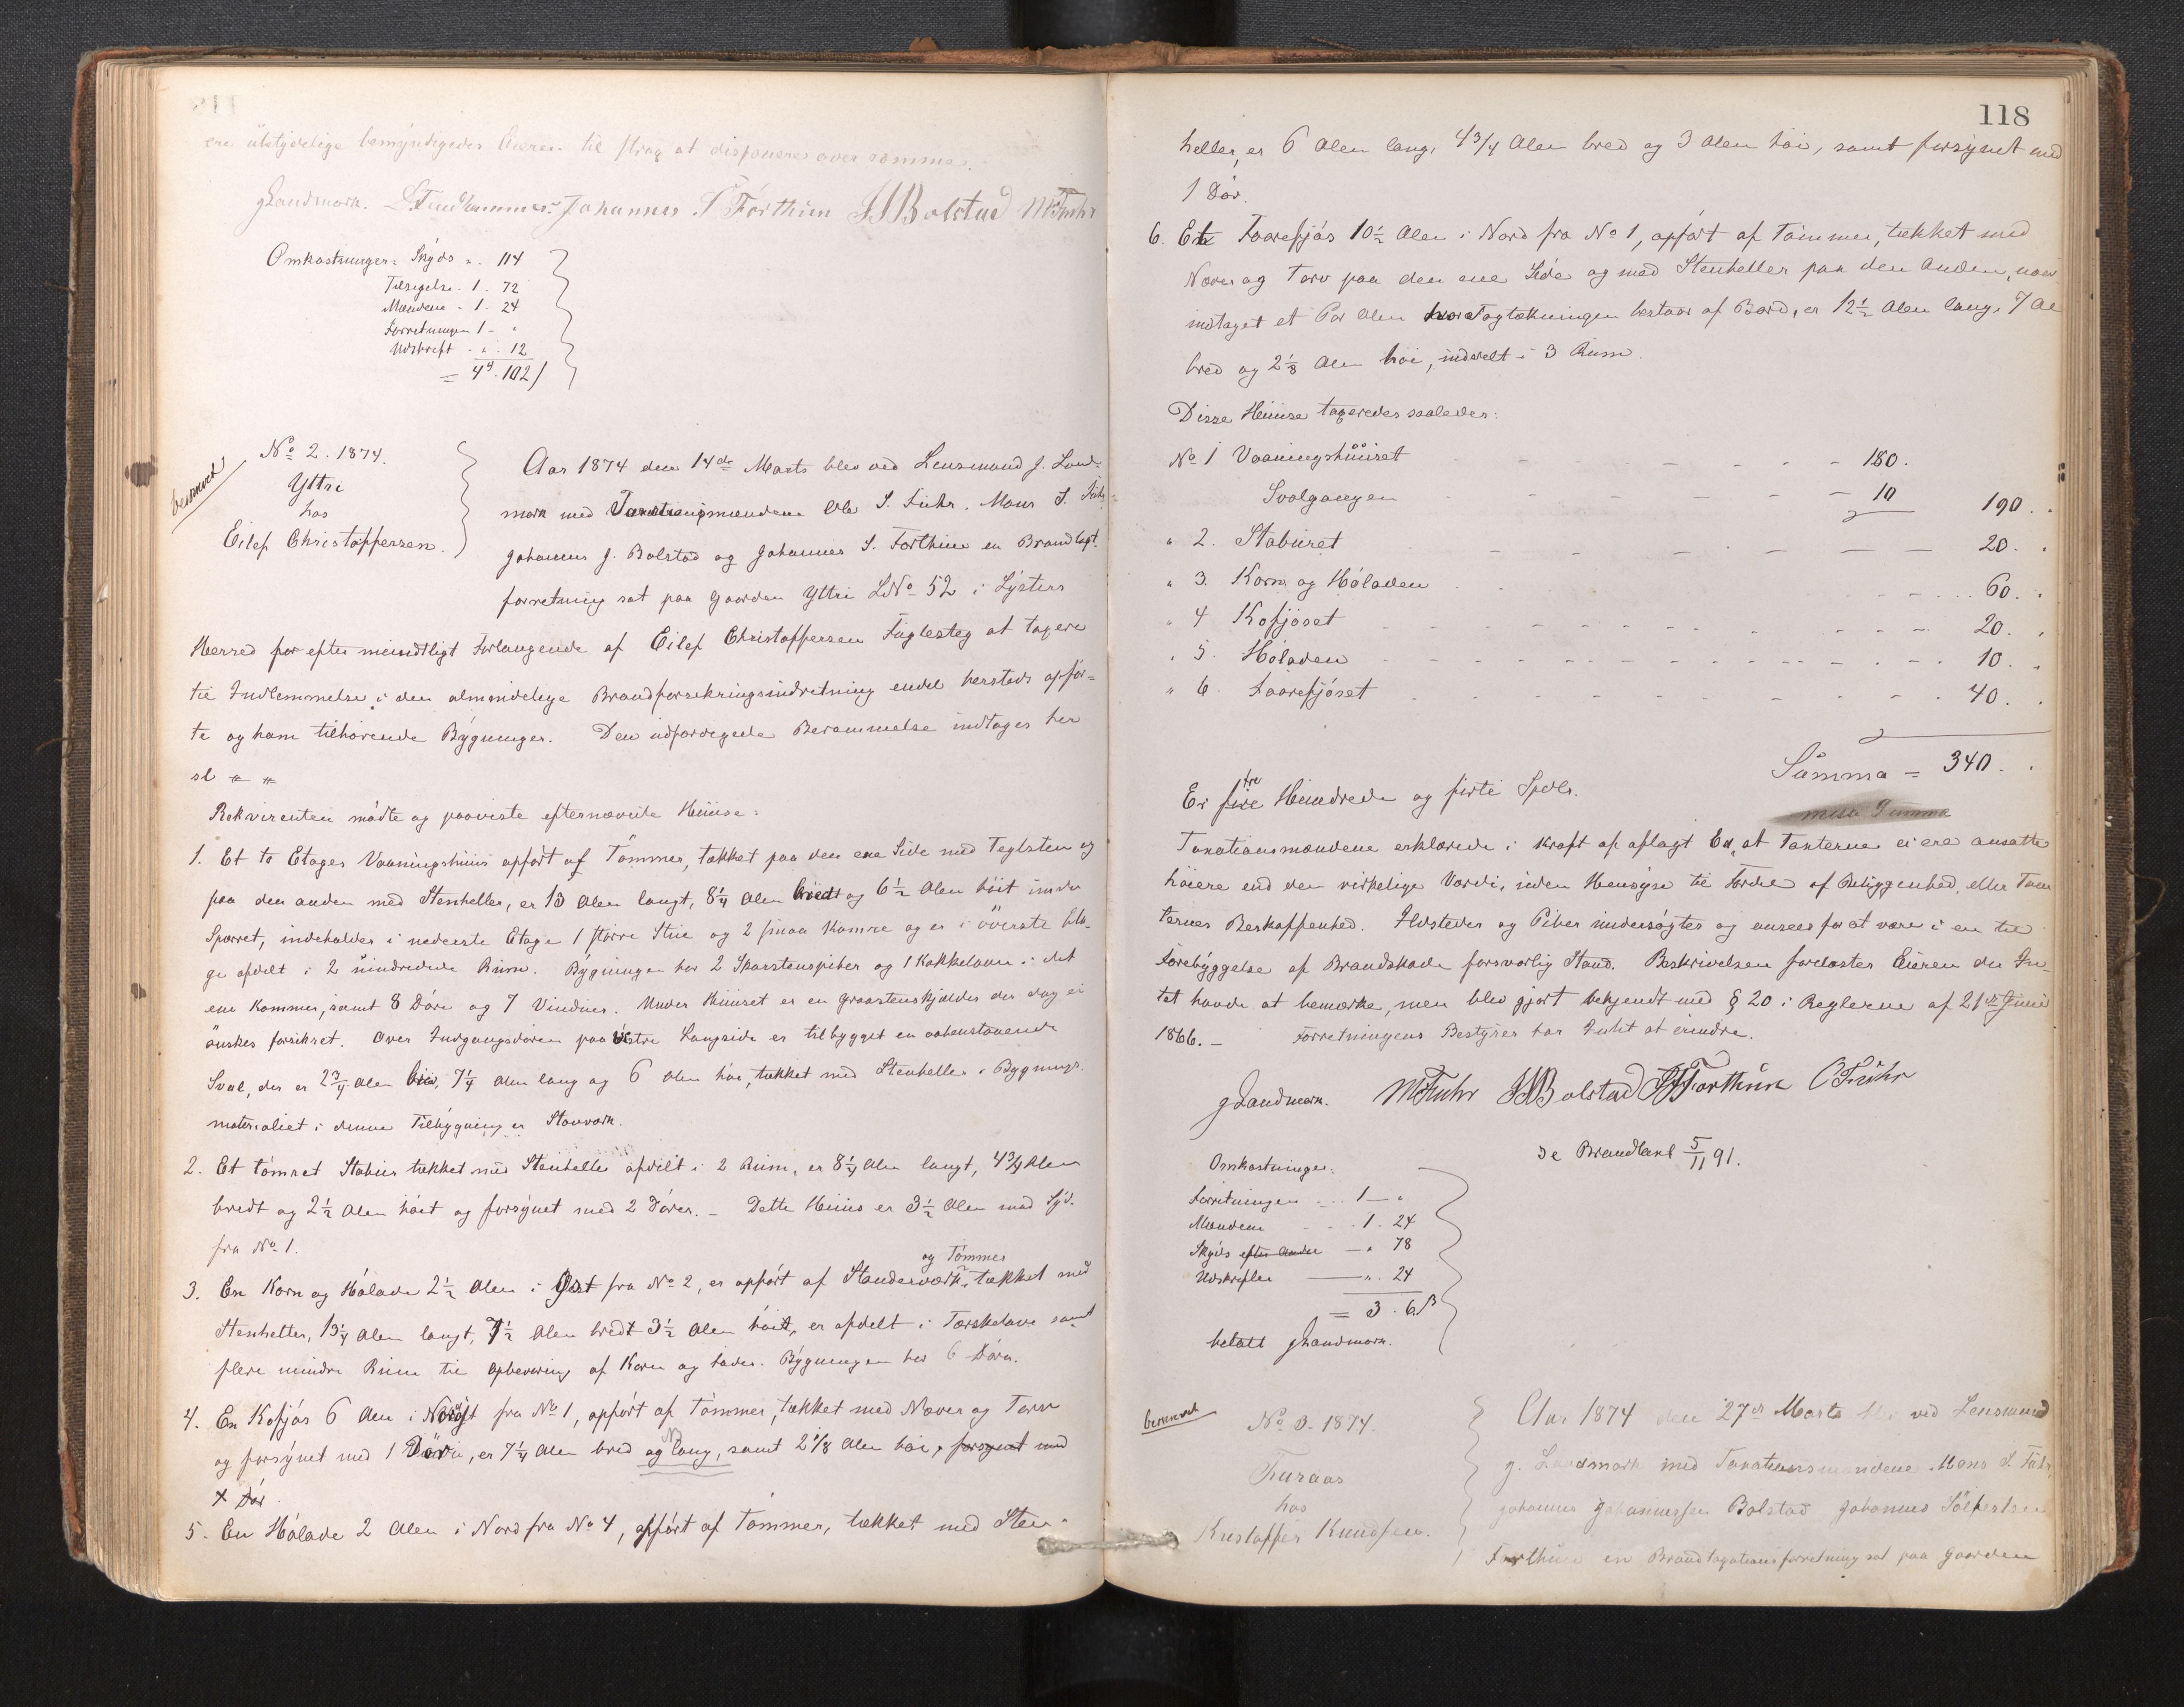 ere ubetydelige bemyndigedes Eieren til strax at disponere over samme.
J Landmark. Johannes S Forthun JJBolstad MFuhr
Omkostninger: Skyds „. 114
Tilsigelse - 1. 72
Mændene - 1. 24
Forretningen 1 - „
Udskrift - „. 12
= 4. 102 /
No 2. 1874.
Yttri
hos
Eilef Christoffersen.
bemærket
Aar 1874 den 14de Marts blev ved Lensmand J. Land-
mark med Taxationsmændene Ole S. Fuhr. Mons S. Fuhr
Johannes J. Bolstad og Johannes S. Forthun en Brandtaxt-
forretning sat paa Gaarden Yttri LNo 52 i Lysters
Herred for efter mundtligt Forlangende af Eilef Christoffersen Fuglesteg at taxere
til Indlemmelse i den almindelige Brandforsikringsindretning endel hersteds opför-
te og ham tilhörende Bygninger. Den udfærdigede Berammelse indtages her
sl " "
Rekvirenten mödte og paaviste efternævnte Huuse:
1. Et to Etages Vaaningshuus opfört af Tömmer, tækket paa den ene Side med Teglsten og
paa den anden med Stenheller, er 13 Alen langt, 8¼ Alen bredt og 6½ Alen höit under
Sparret, indeholder i nederste Etage 1 större Stue og 2 smaa Kamre og er i överste Eta-
ge afdelt i 2 uindredede Rum. Bygningen har 2 Skorstenspiber og 1 Kakkelovn i det
ene Kammer, samt 8 Döre og 7 Vinduer. Under Huuset er en Graastenskjælder der dog ei
önskes forsikret. Over Indgangsdören paa östre Langside er tilbygget en aabenstaaende
Sval, der er 2¾ Alen bred, 7¼ Alen lang og 6 Alen höi, tækket med Stenheller. Bygnings-
materialiet i denne Tilbygning er Stavværk.
2. Et tömret Stabur tækket med Stenheller afdelt i 2 Rum, er 8¼ Alen langt, 4¾ Alen
bredt og 2½ Alen höit og forsynet med 2 Dörer. - Dette Huus er 3½ Alen mod Syd.
fra No 1.
og Tömmer
3. En Korn og Hölade 2½ Alen i Öst fra No 2, er opfört af Standerværk, tækket med
Stenheller, 19¼ Alen langt, 7½ Alen bredt 3½ Alen höit, er afdelt i Tærskelave samt
flere mindre Rum til Opbevaring af Korn og Foder. Bygningen har 6 Döre.
4. En Kofjös 6 Alen i Nordöst fra No 1, opfört af Tömmer, tækket med Næver og Torv
og forsynet med 1 Dör, er 7¼ Alen bred og lang, samt 2⅛ Alen höi, forsynet med
1 Dör.
5. En Hölade 2 Alen i Nord fra No 4, opfört af Tömmer, tækket med Sten-
118
heller, er 6 Alen lang, 4¾ Alen bred og 3 Alen höi, samt forsynet med
1 Dör.
6. Et Faarefjös 10½ Alen i Nord fra No 1, opfört af Tömmer, tækket med
Næver og Torv paa den ene Side og med Stenheller paa den Anden, naar
undtaget et Par Alen hvor Tagtækningen bestaar af Bord, er 12½ Alen lang, 7 Al
bred og 2⅛ Alen höi, inddelt i 3 Rum.
Disse Huuse taxeredes saaledes:
No 1 Vaaningshuuset - - - 180.
Svalgangen - - - 10 190. .
„ 2. Staburet - - - 20. .
„ 3. Korn og Höladen - - - 60. .
„ 4 Kofjöset - - - 20. .
„ 5. Höladen - - - 10. .
„ 6. Faarefjöset - - - 40. .
Summa = 340. .
tre
Er fire Hundrede og firti Spdlr.
Taxationsmændene erklærede i Kraft af aflagt Ed, at Taxterne ei ere ansatte
höiere end den virkelige Værdi, uden Hensyn til Fordel af Beliggenhed, eller Tom
ternes Beskaffenhed. Ildsteder og Piber undersögtes og ansees for at være i en til
Forebyggelse af Brandskade forsvarlig Stand. Beskrivelsen forelæstes Eieren der In-
tet havde at bemærke, men blev gjort bekjendt med § 20 i Reglerne af 21de Juni
1866. - Forretningens Bestyrer har Intet at erindre.
J Landmark. MFuhr JJBolstad JSForthun OFuhr
Se Brandtaxt 5/11 91.
Omkostninger:
Forretningen - - 1 - „
Mændene - - 1. 24
Skyds efter Andre - „ 78
Udskrifter - „. 24
= 3. 6 ß
betalt J Landmark.
bemærket
No 3. 1874.
Furaas
hos
Kristoffer Knudsen.
Aar 1874 den 27de Marts blev ved Lensmand
J. Landmark med Taxationsmændene Mons S. Fuhr,
Johannes Johannessen Bolstad Johannes Sölfestsen
Forthun en Brandtaxationsforretning sat paa Gaarden